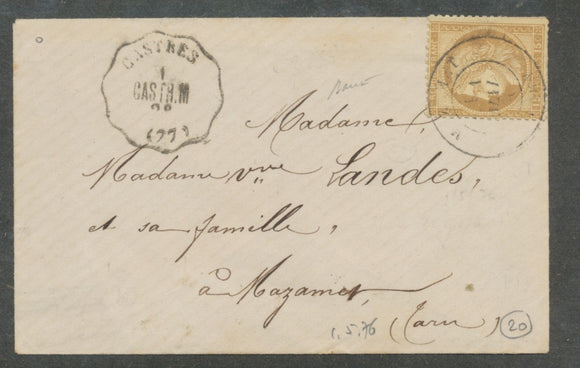 CASTRES
1
CASTR.M
(77)
Madame,
Madame vve Landes,
et sa famille,
à Mazamet,
(Tarn)
1.5.76
20